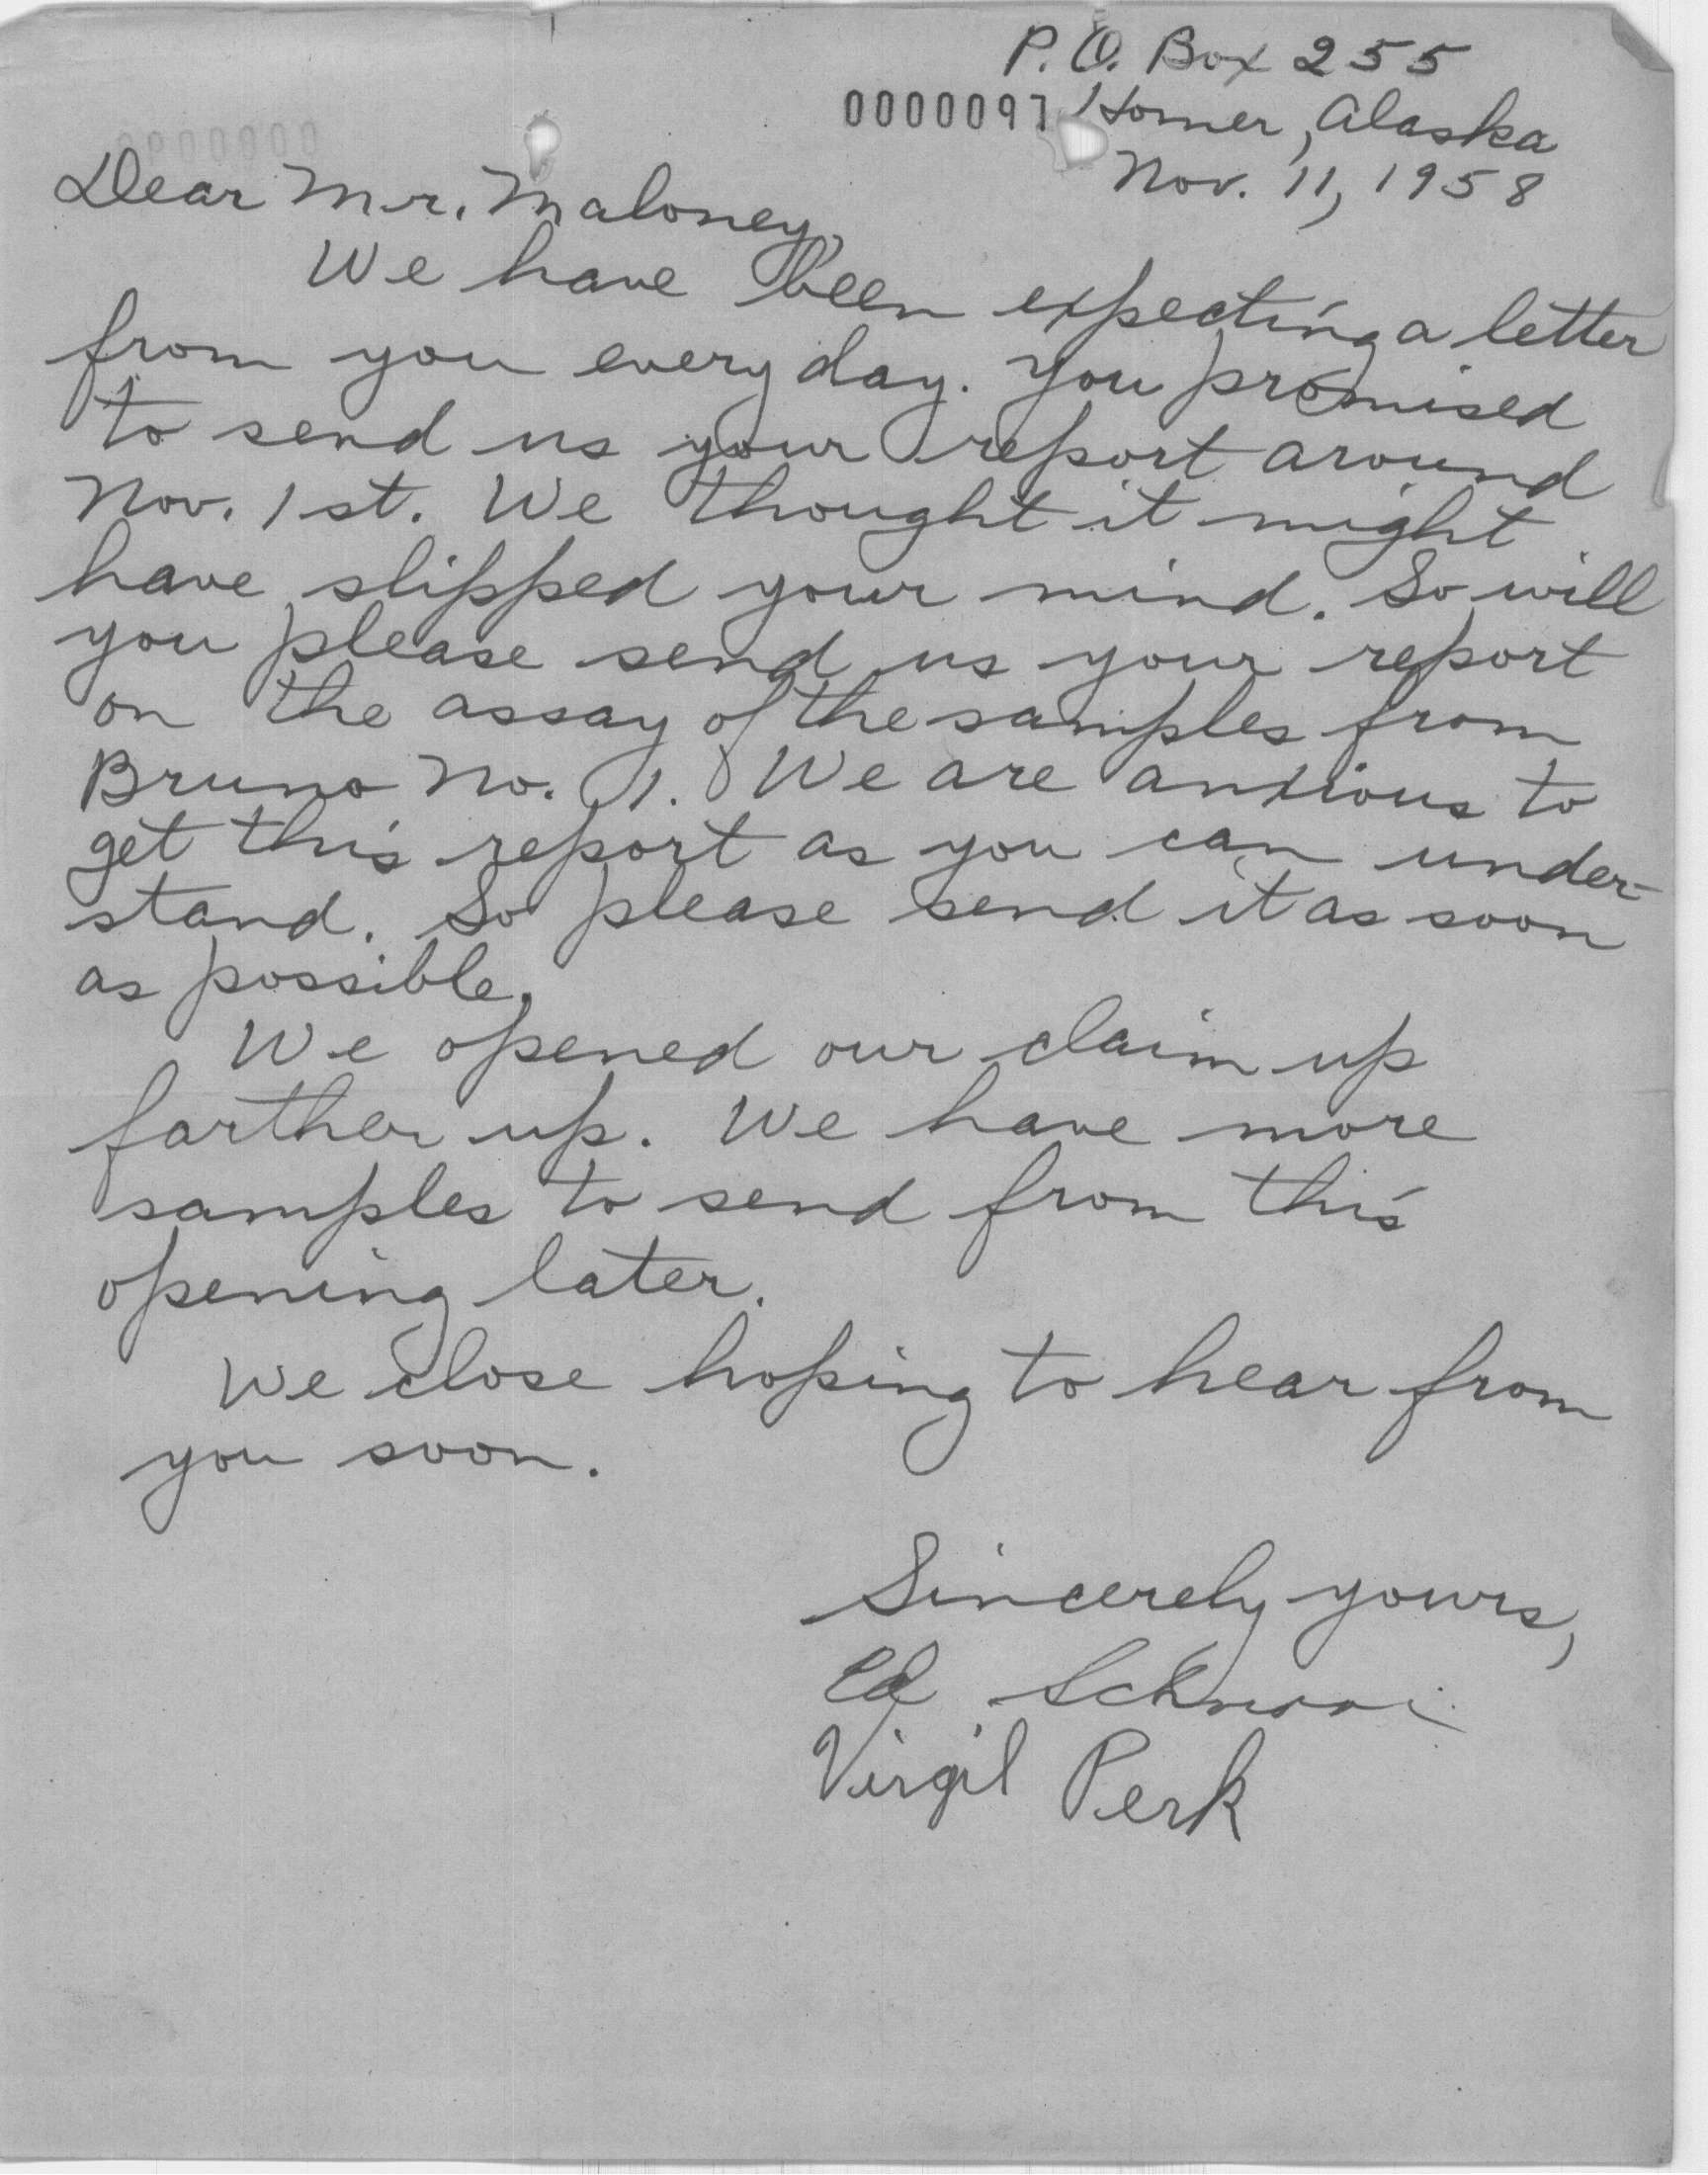 P.O. Box 255
0000097 Homer, Alaska
Nov. 11, 1958
0000000
Dear Mr. Maloney,
We have been expecting a letter
from you every day. You promised
to send us your report around
Nov. 1st. We thought it might
have slipped your mind. So will
you please send us your report
on the assay of the samples from
Bruno No. 1. We are anxious to
get this report as you can under-
stand. So please send it as soon
as possible.
We opened our claim up
farther up. We have more
samples to send from this
opening later.
We close hoping to hear from
you soon.
Sincerely yours,
Ed
Virgil Perk